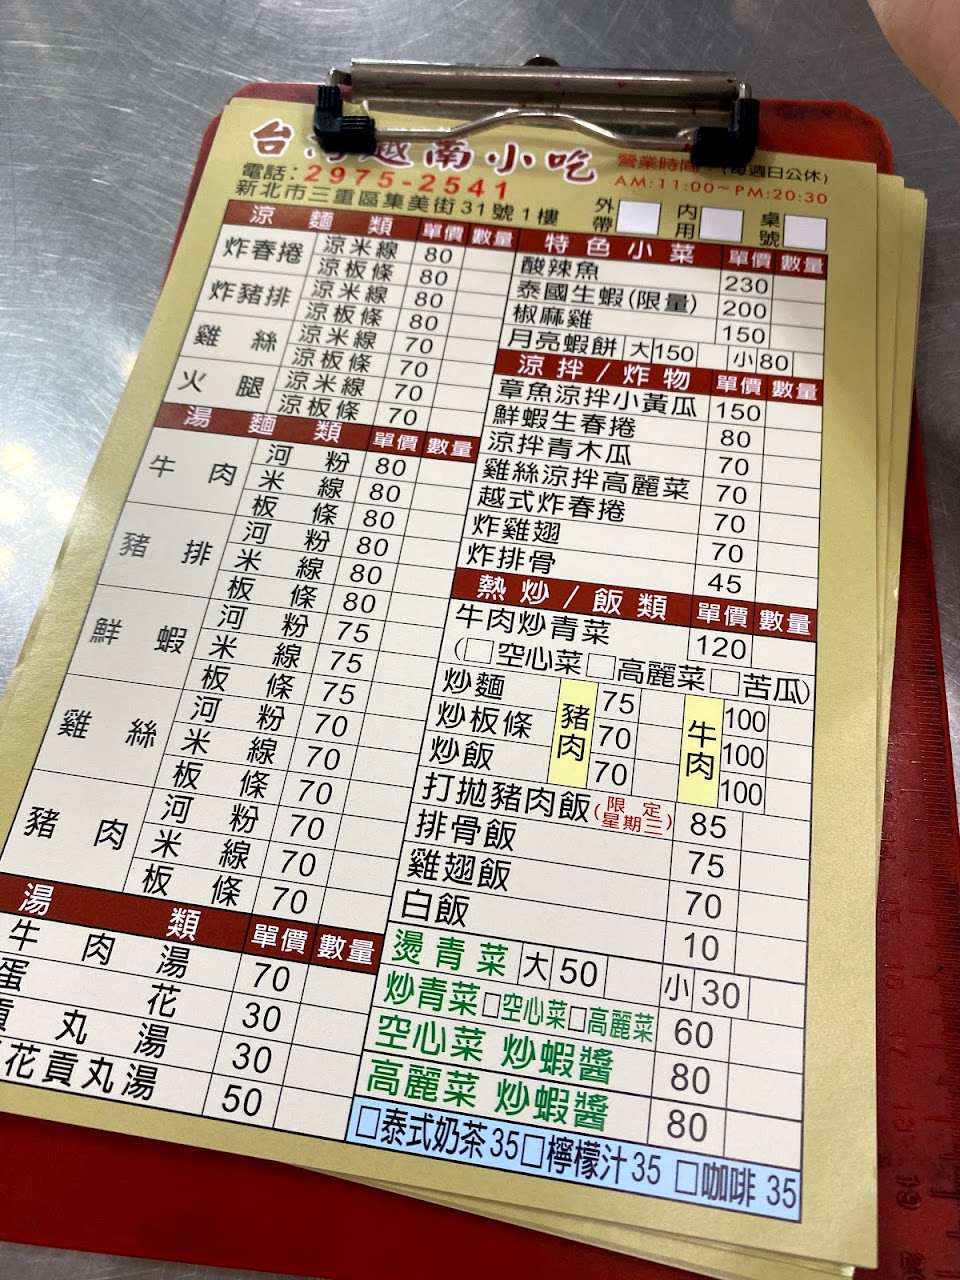 台灣越南小吃
電話:2975-2541
新北市三重區集美街31號1樓
營業時間:(每週日公休)
AM:11:00~PM:20:30
外帶 內用 桌號
涼麵類 單價 數量
炸春捲 涼米線 80
涼板條 80
炸豬排 涼米線 80
涼板條 80
雞絲 涼米線 70
涼板條 70
火腿 涼米線 70
涼板條 70
湯麵類 單價 數量
牛肉 河粉 80
米線 80
板條 80
豬排 河粉 80
米線 80
板條 80
鮮蝦 河粉 75
米線 75
板條 75
雞絲 河粉 70
米線 70
板條 70
豬肉 河粉 70
米線 70
板條 70
湯類 單價 數量
牛肉湯 70
蛋花 30
貢丸湯 30
花貢丸湯 50
特色小菜 單價 數量
酸辣魚 230
泰國生蝦(限量) 200
椒麻雞 150
月亮蝦餅 大 150 小 80
涼拌/炸物 單價 數量
章魚涼拌小黃瓜 150
鮮蝦生春捲 80
涼拌青木瓜 70
雞絲涼拌高麗菜 70
越式炸春捲 70
炸雞翅 70
炸排骨 45
熱炒/飯類 單價 數量
牛肉炒青菜 120
(□空心菜□高麗菜□苦瓜)
炒麵 豬肉 75 牛肉 100
炒板條 70 100
炒飯 70 100
打拋豬肉飯(限定星期三) 85
排骨飯 75
雞翅飯 70
白飯 10
燙青菜 大 50 小 30
炒青菜□空心菜□高麗菜 60
空心菜 炒蝦醬 80
高麗菜 炒蝦醬 80
□泰式奶茶35□檸檬汁35 □咖啡 35